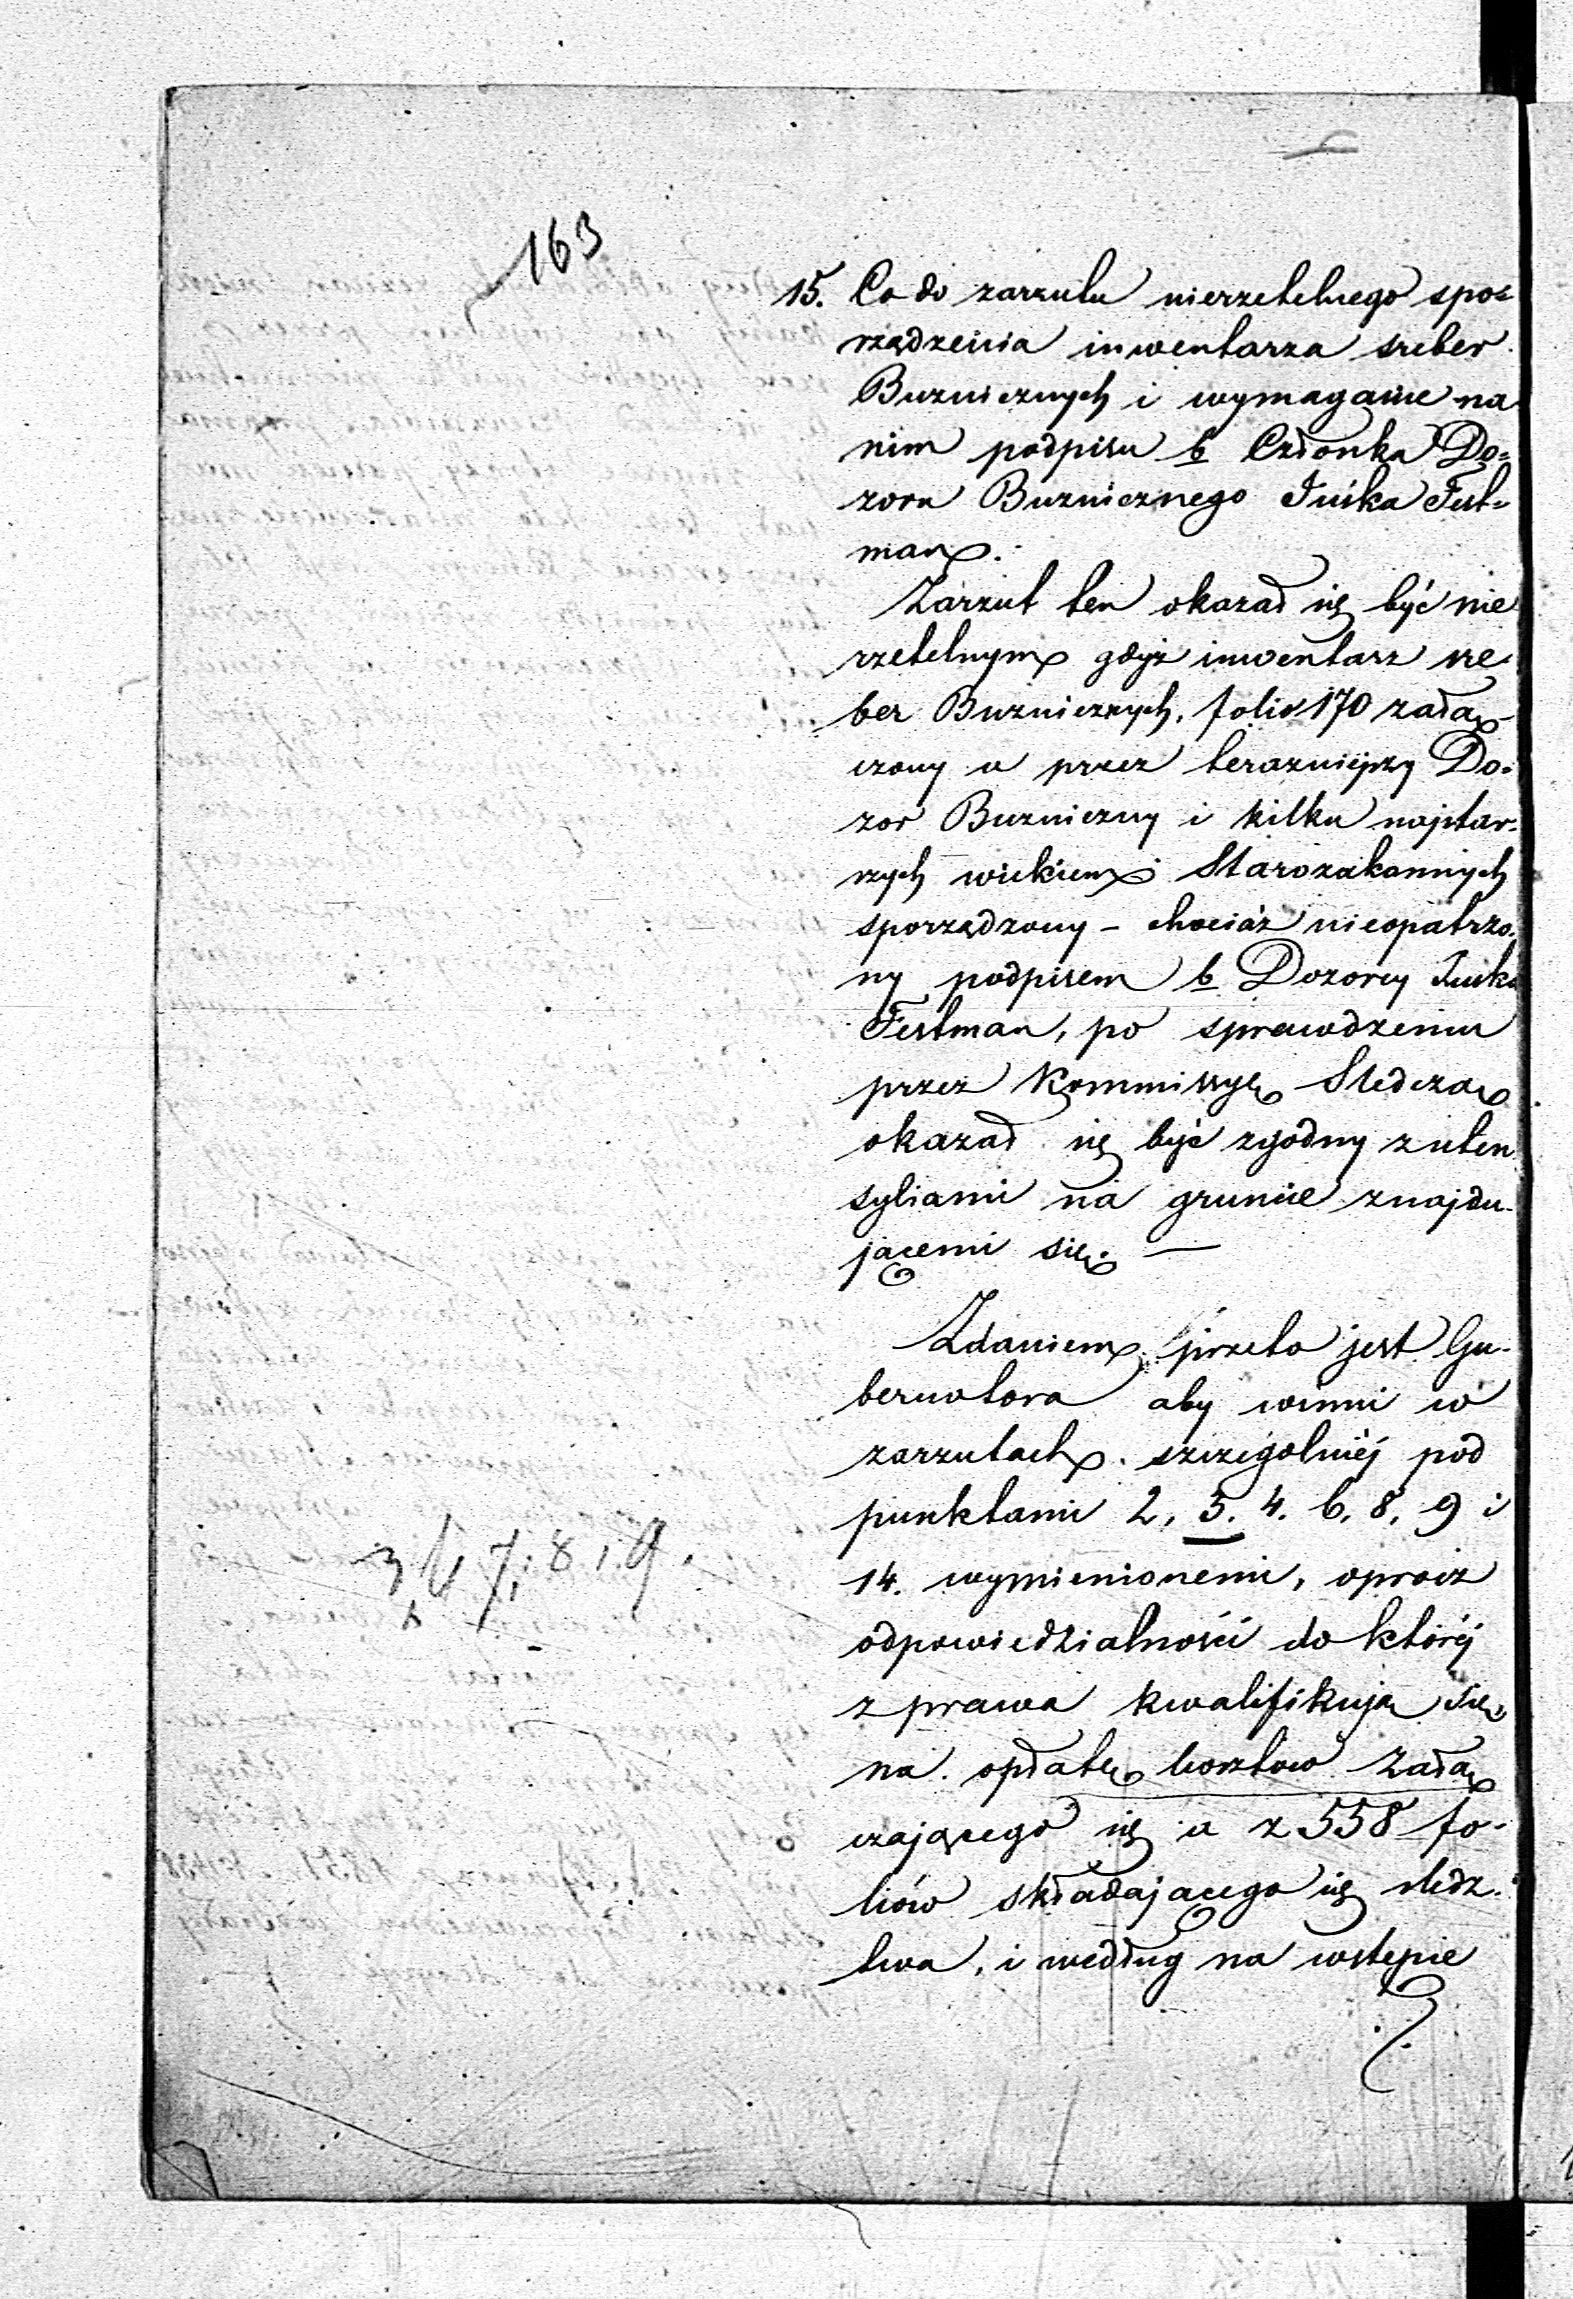 163
15. Co do zarzutu nierzetelnego spo=
rządzenia inwentarza sreber
Buznicznych i wymaganie na
nim podpisu b Członka Do=
zoru Buznicznego Fest=
man.
Zarzut ten okazał się być nie
rzetelnym gdyż inwentarz sre-
ber Buznicznych, folio 170 załą-
czony a przez terazniejszy Do=
zor Buzniczny i kilku najstar-
szych wiekiem Starozakonnych
sporządzony - chociaż nieopatrzo-
ny podpisem b Dozorcy
Festman, po sprawdzeniu
przez Kommissyę Sledczą
okazał się być zgodny z uten
syliami na gruncie znajdu-
jącemi się. —
Zdaniem przeto jest Gu-
bernatora aby winni w
zarzutach szczególniéj pod
punktami 2, 3. 4. 6. 8, 9 i
3 7, 8, 9.
14. wymienionemi, oprócz
odpowiedzialności do któréj
z prawa kwalifikują się,
na opłatę kosztow załą
czającego się a z 558 fo-
liów składającego się sledz-
twa, i według na wstępie